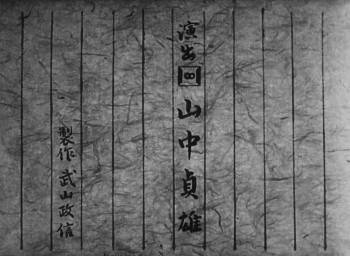 演出 山中貞雄
製作 武山政信